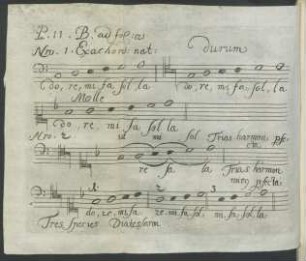 P. 11. B. ad fol. a
Nro. 1. Exachord: nat: Durum
do, re, mi, fa, sol, la do, re, mi, fa, sol, la
Molle
do, re, mi, fa sol la
Nro. 2 ut mi sol Trias harmon: pfe
cta
re fa la Trias harmon
1. 2 3
do, re, mi, fa re, mi, fa, sol, mi, fa, sol, la
Tres species Diatessaron